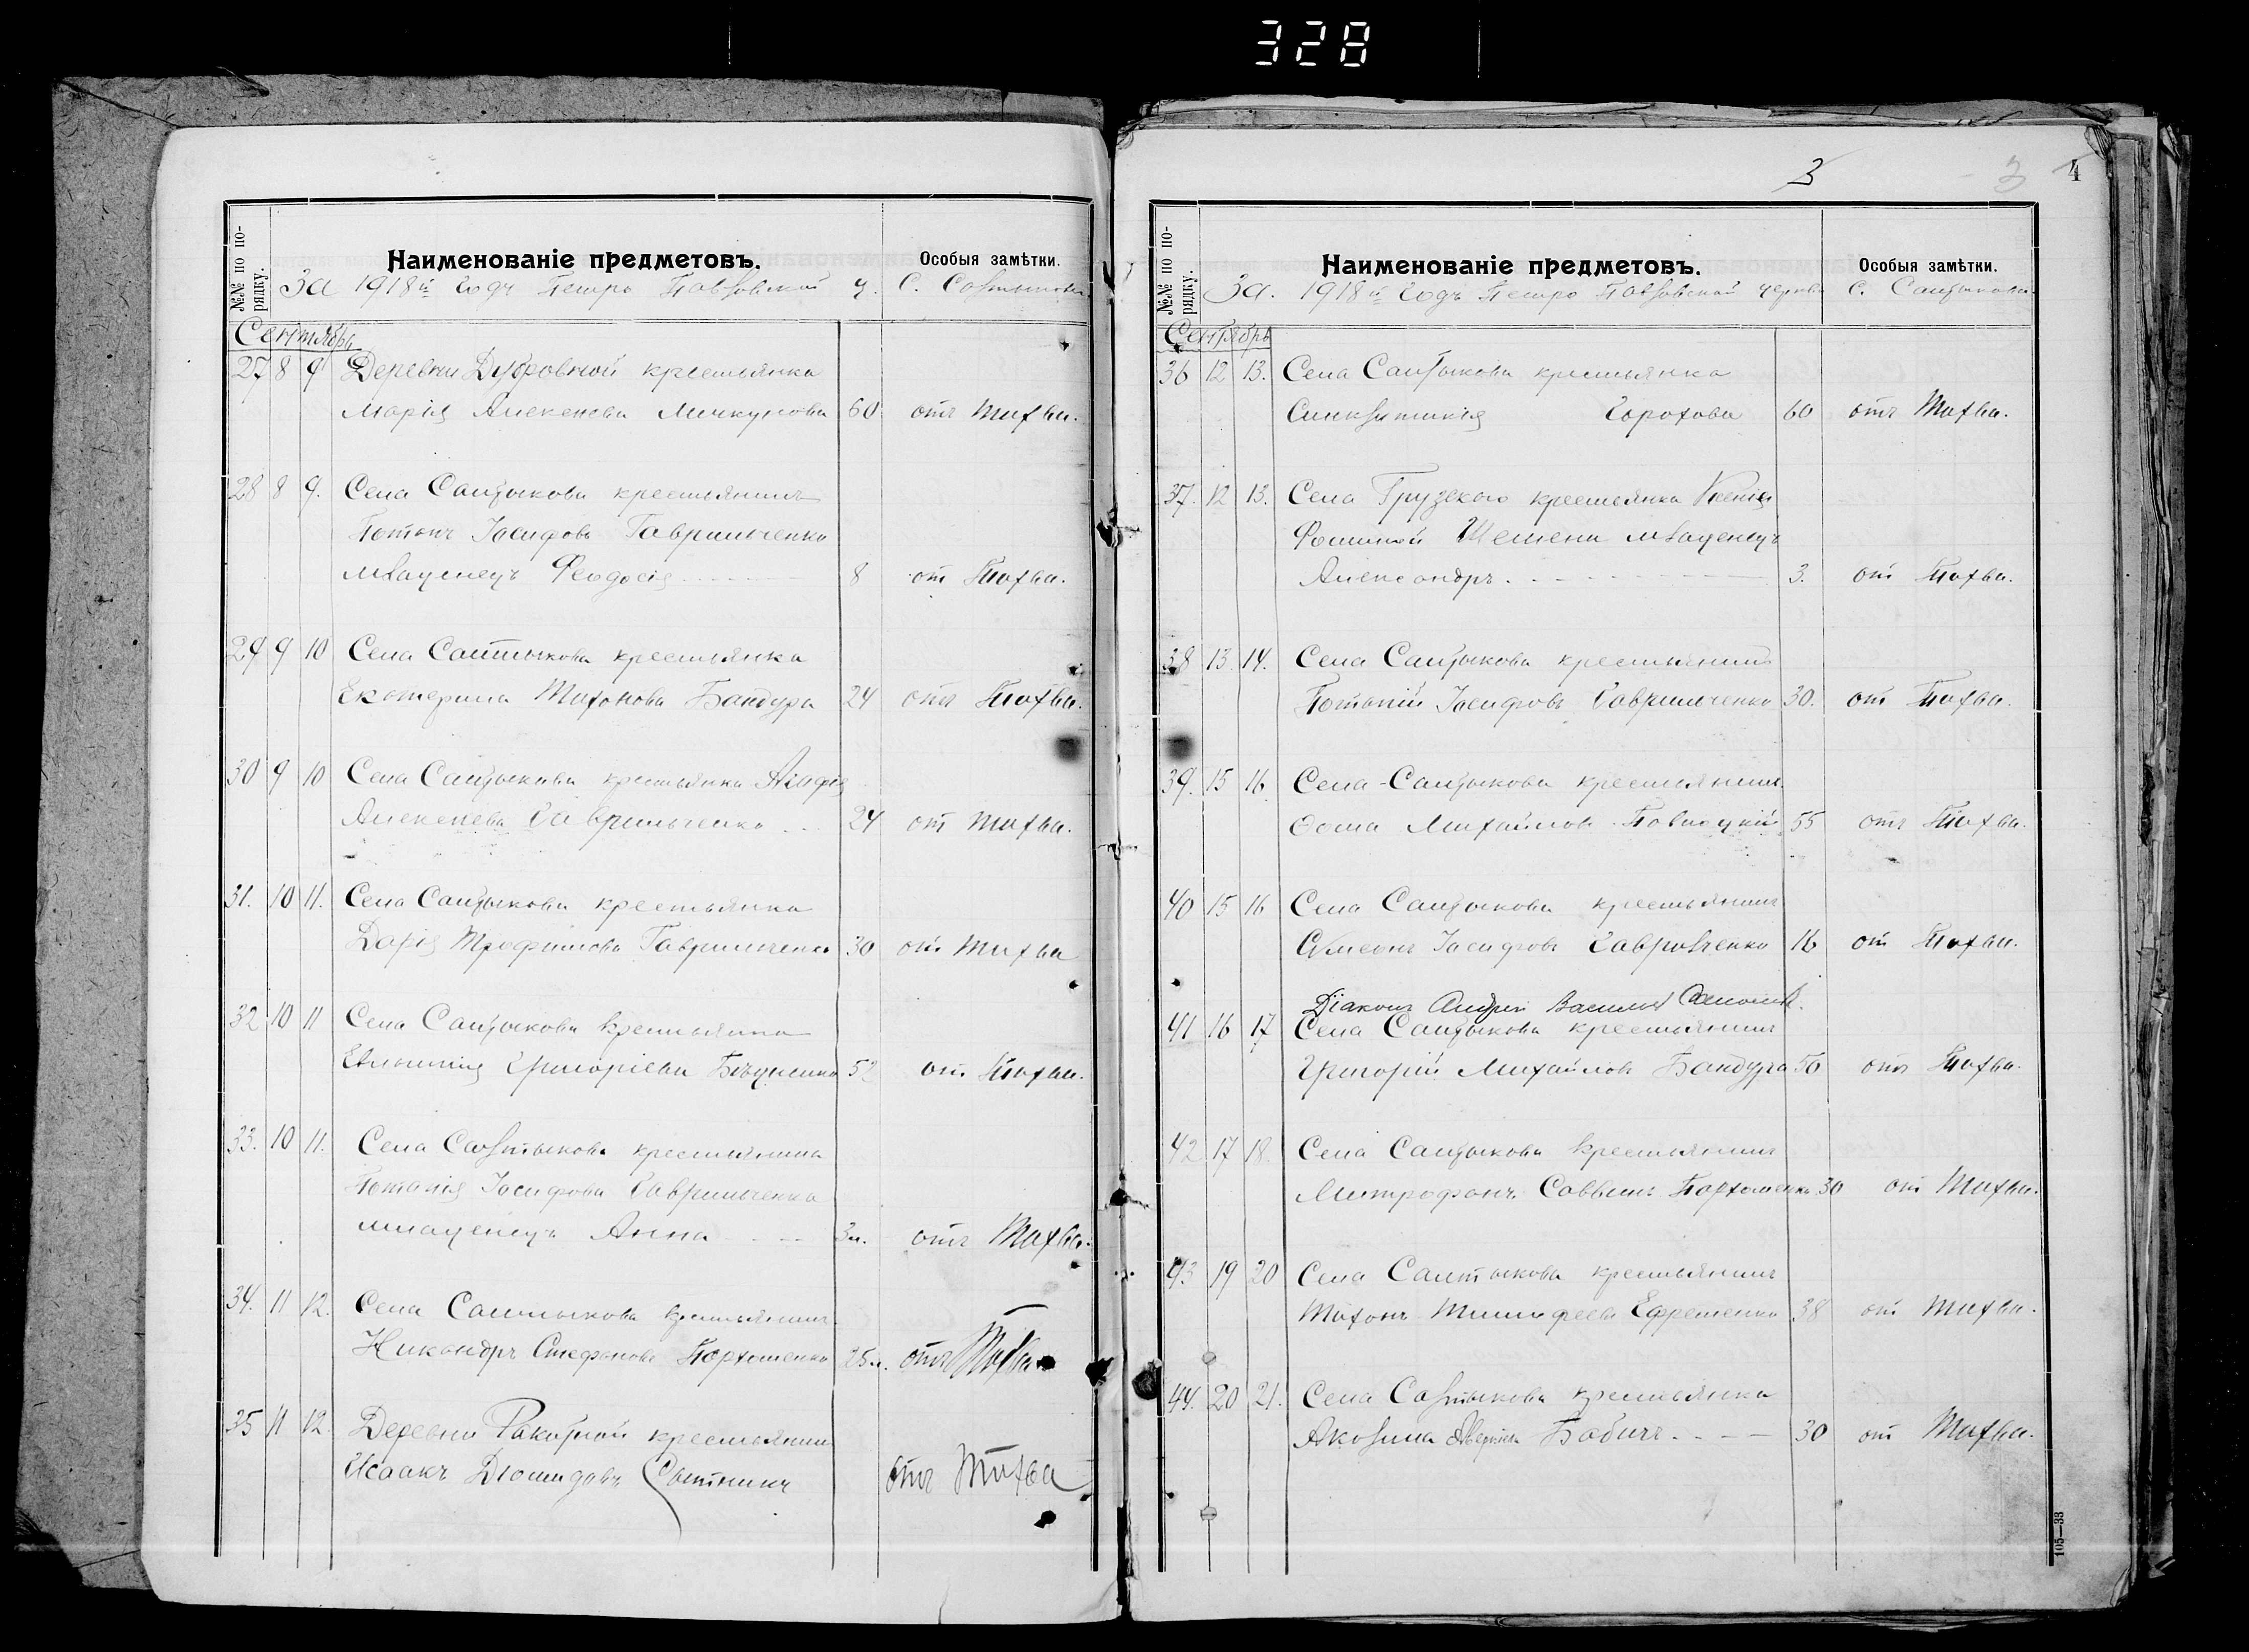 328
№№ по по-
рядку.
Наименованіе предметовъ.
Особыя замѣтки.
За 1918й годъ Петро Павловской ц. с. Салтыкова
Сентябрь
27 8 9 Деревни Дубровной крестьянка
Марія Алексеева Мичкунова 60 отъ Тифа.
28 8 9. Села Салтыкова крестьянинъ
Іосифова Гавриличенко
младенецъ Феодосія 8 от Тифа.
29 9 10 Села Салтыкова крестьянка
Екатерина Тихонова Бандура 24 отъ Тифа.
30 9 10 Села Салтыкова крестьянка Агафія
Алексеева Гавриличенко 24 от Тифа.
31. 10 11. Села Салтыкова крестьянка
Дарія Трофимова Гавриличенко 30 отъ Тифа
32 10 11 Села Салтыкова крестьянка
Евлампія Григоріева 52 от Тифа.
33. 10 11. Села Салтыкова крестьянина
Потапія Іосифова Гавриличенко
младенецъ Анна 3м. отъ Тифа.
34. 11 12. Села Салтыкова крестьянинъ
Никандръ Стефановъ Пархоменко 25л. отъ Тифа
35 11 12. Деревни Ракитной крестьянин
Исаакъ Сытникъ отъ Тифа
3 3 4
№№ по по-
рядку.
Наименованіе предметовъ.
Особыя замѣтки.
За. 1918й годъ Петро Павловской церкви с. Салтыкова
Сентябрь
36 12 13. Села Салтыкова крестьянка
Синклитикія Горохова 60 отъ Тифа.
37. 12 13. Села Грузского крестьянка Ксенія
Фоминой младенецъ
Александръ. 3. от Тифа.
38 13 14. Села Салтыкова крестьянинъ
Потапій Іосифовъ Гавриличенко 30. от Тифа.
39. 15 16 Села Салтыкова крестьянинъ
Ѳома Михайловъ 55 отъ Тифа.
40 15 16 Села Салтыкова крестьянинъ
Сумеонъ Іосифовъ Гавриличенко 16 от Тифа.
Діаконъ Андрей Васильев
41 16 17 Села Салтыкова крестьянинъ
Григорій Михайловъ Бандура 56 отъ Тифа.
42 17 18. Села Салтыкова крестьянинъ
Митрофанъ Саввинъ Пархоменко 30 от Тифа.
43 19 20 Села Салтыкова крестьянинъ
Тихонъ Тимофеевъ Ефременко 38 от Тифа.
44. 20 21. Села Салтыкова крестьянка
Акулина Бабичъ 30 от Тифа.
105—33